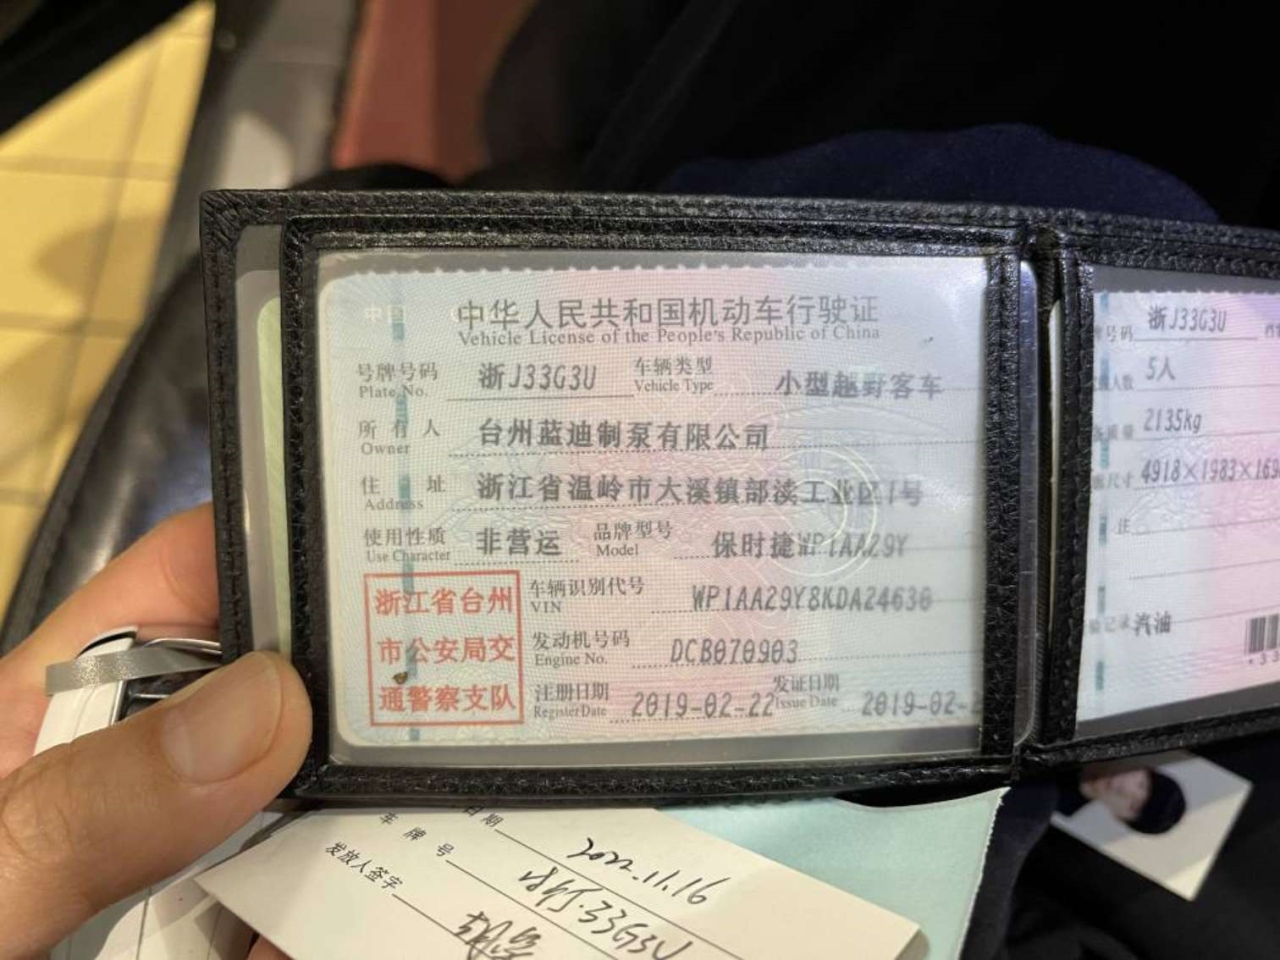 中华人民共和国机动车行驶证
Vehicle License of the People's Republic of China
号牌号码 浙J33G3U 车辆类型 小型越野客车
Plate No. Vehicle Type
所有人 台州蓝迪制泵有限公司
Owner
住址 浙江省温岭市大溪镇部渎工业区1号
Address
使用性质 非营运 品牌型号 保时捷WP1AA29Y
Use Character Model
浙江省台州
市公安局交
通警察支队
车辆识别代号 WP1AA29Y8KDA24630
VIN
发动机号码 DCB070903
Engine No.
注册日期 2019-02-22 发证日期 2019-02-
Register Date Issue Date
号码 浙J33G3U
人数 5人
质量 2135kg
尺寸 4918×1983×163
注
记录 汽油
日期 2022.11.16
车牌号 浙J.33G3U
发放人签字